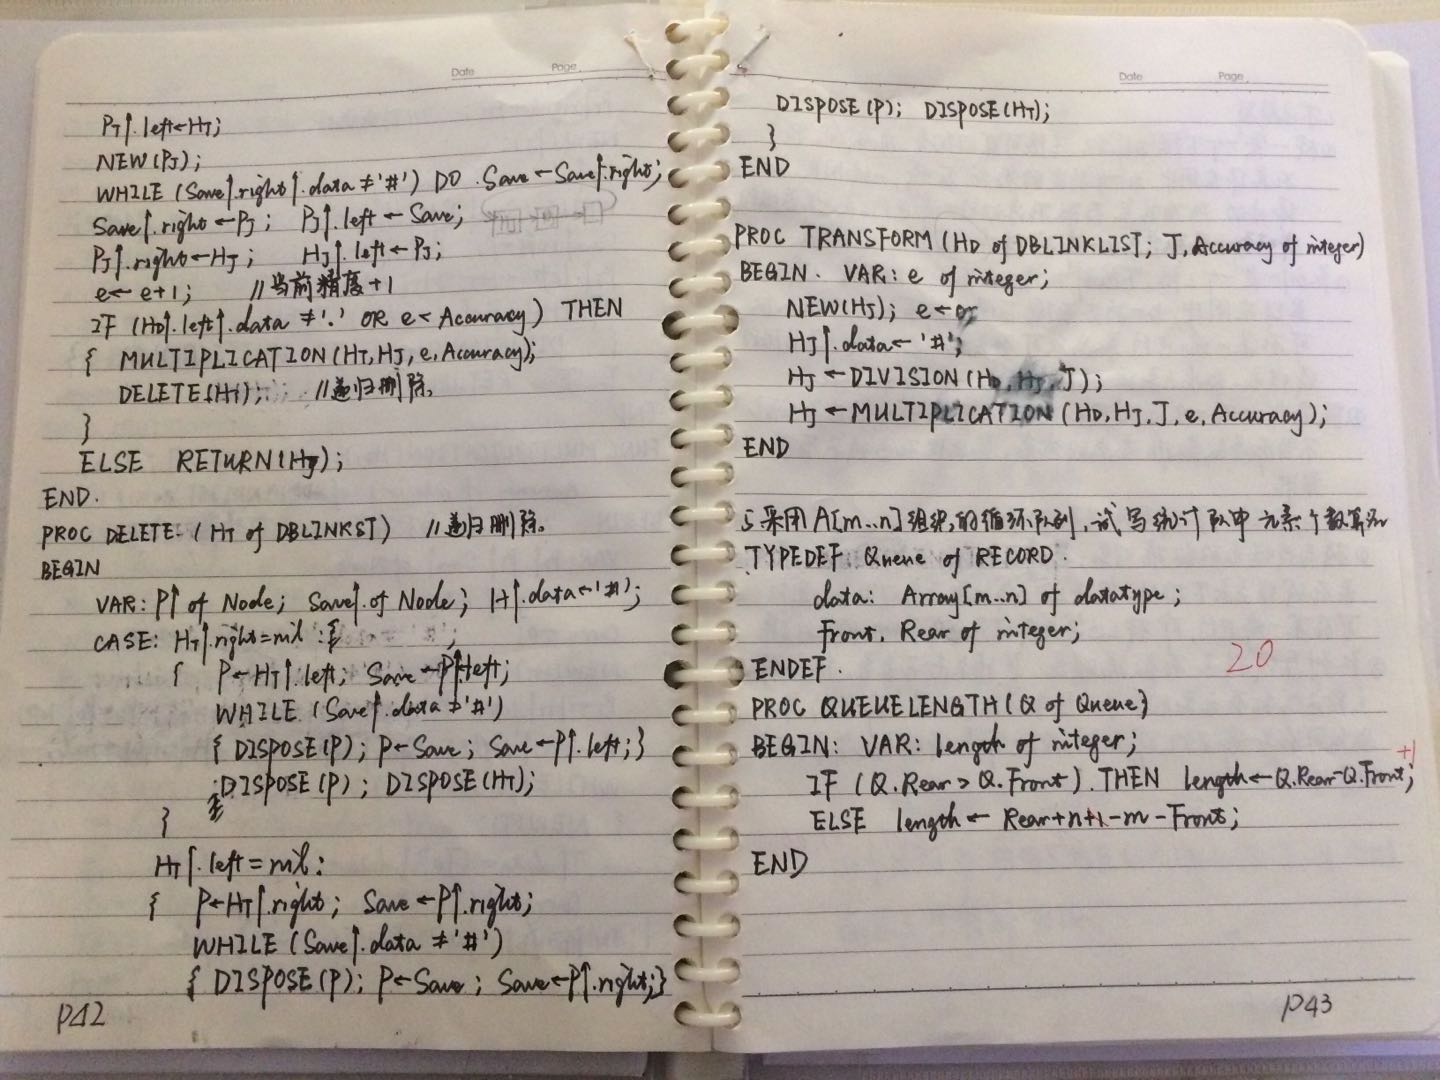 Date Page
P_J↑.left←H_T;
NEW(P_J);
WHILE (Save↑.right↑.data≠'#') DO Save←Save↑.right;
Save↑.right←P_J; P_J↑.left←Save;
P_J↑.right←H_J; H_J↑.left←P_J;
e←e+1; //当前精度+1
IF (H_D↑.left↑.data≠'.' OR e<Accuracy) THEN
{ MULTIPLICATION(H_T,H_J,e,Accuracy);
DELETE(H_T); //递归删除。
}
ELSE RETURN(H_J);
END.
PROC DELETE (H_T of DBLINKST) //递归删除。
BEGIN
VAR: P↑ of Node; Save↑.of Node; H↑.data←'#';
CASE: H_T↑.right=nil :{
{ P←H_T↑.left; Save←P↑.left;
WHILE (Save↑.data≠'#')
{ DISPOSE(P); P←Save; Save←P↑.left;}
DISPOSE(P); DISPOSE(H_T);
}
H_T↑.left=nil:
{ P←H_T↑.right; Save←P↑.right;
WHILE (Save↑.data≠'#')
{ DISPOSE(P); P←Save; Save←P↑.right;}
P42
Date Page
DISPOSE(P); DISPOSE(H_T);
}
END
PROC TRANSFORM (H_D of DBLINKLIST; J,Accuracy of integer)
BEGIN. VAR: e of integer;
NEW(H_J); e←0;
H_J↑.data←'#';
H_J←DIVISION(H_D,H_J,J);
H_J←MULTIPLICATION(H_D,H_J,J,e,Accuracy);
END
5采用A[m..n]组织的循环队列,试写统计队中元素个数算法
TYPEDEF Queue of RECORD.
data: Array[m..n] of datatype;
Front, Rear of integer;
20
ENDEF.
PROC QUEUELENGTH(Q of Queue)
BEGIN: VAR: length of integer;
+1
IF (Q.Rear>Q.Front).THEN length←Q.Rear-Q.Front;
ELSE length←Rear+n+1-m-Front;
END
P43